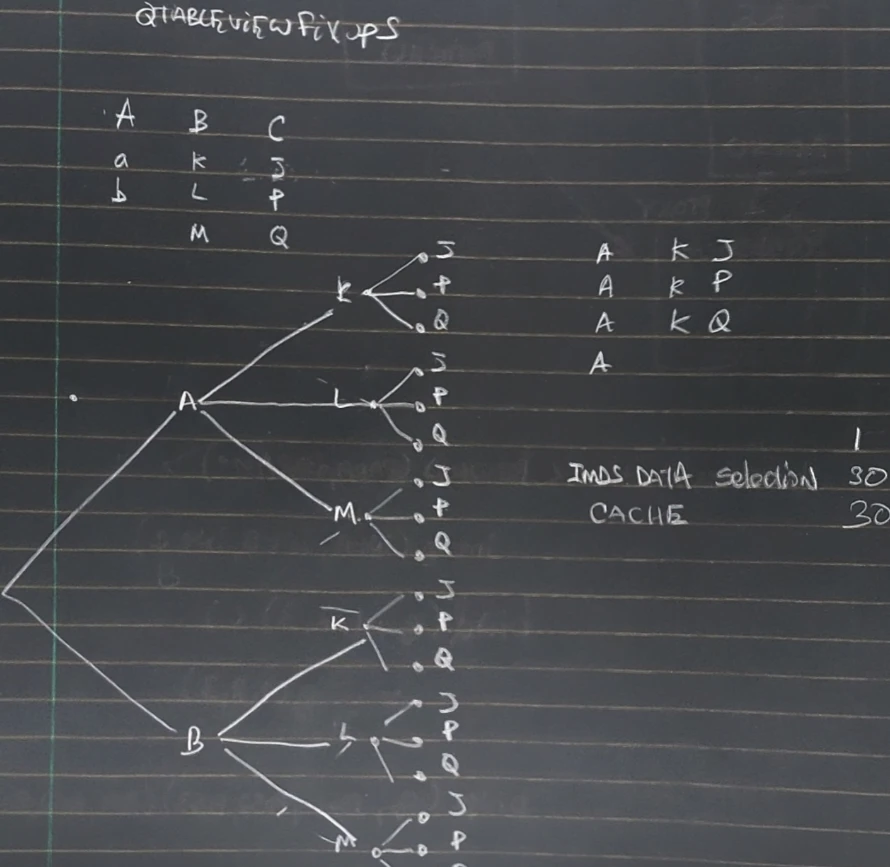 QTABLEVIEW FixupS
A B C
a K J
b L P
M Q
J
K P
Q
J
A L P
Q
J
M P
Q
J
K P
Q
J
B L P
Q
J
M P
A K J
A K P
A K Q
A
1
IMDS DATA Selection 30
CACHE 30